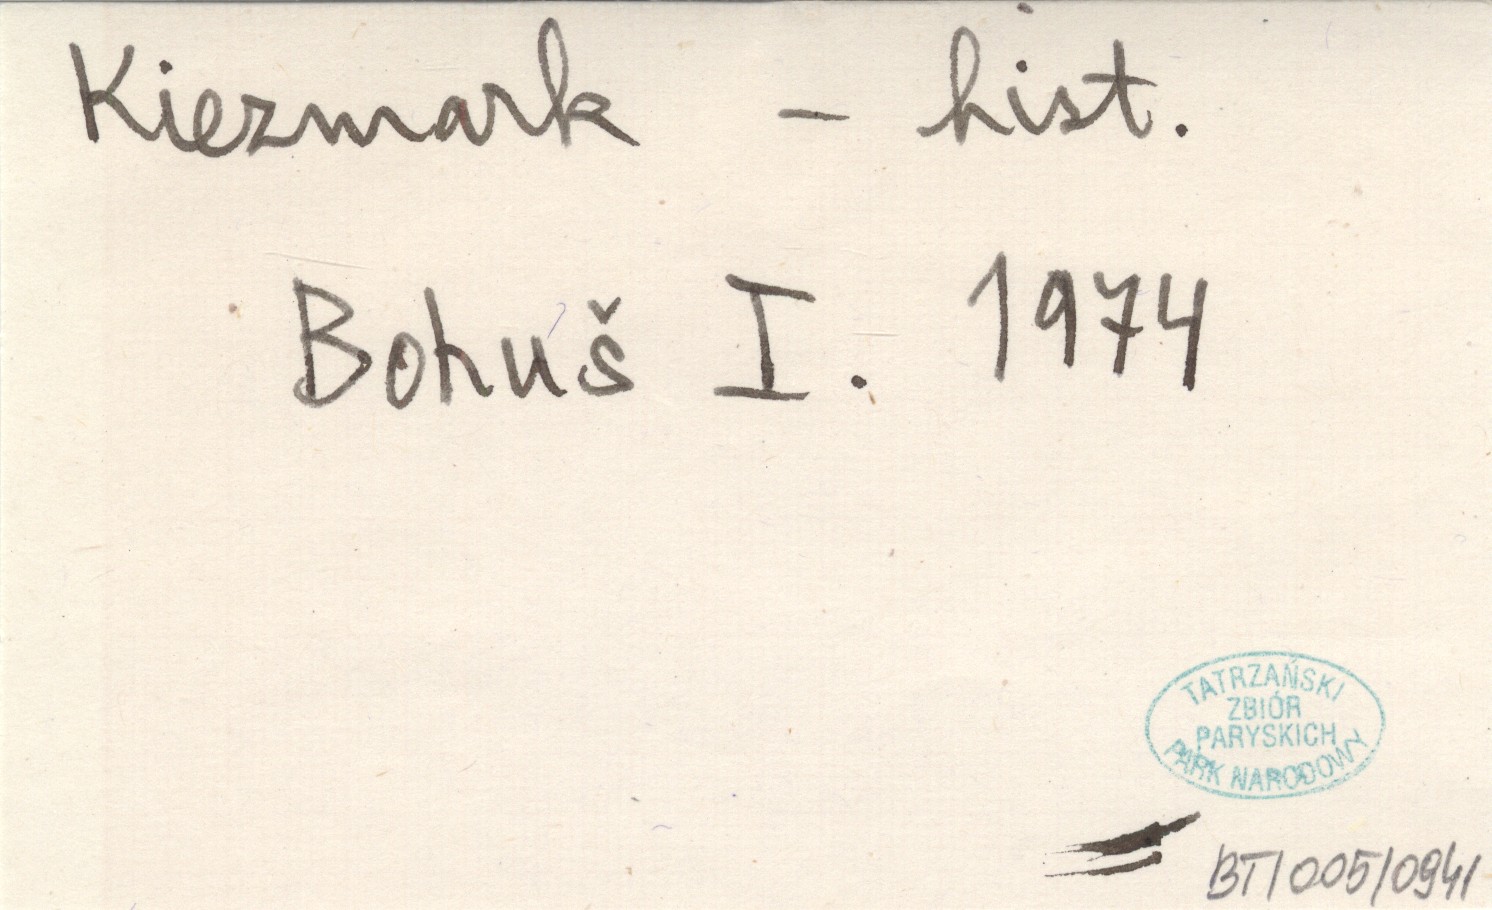 Kiezmark – hist.
Bohuš I. 1974
TATRZAŃSKI
ZBIÓR
PARYSKICH
PARK NARODOWY
BT/005/0941